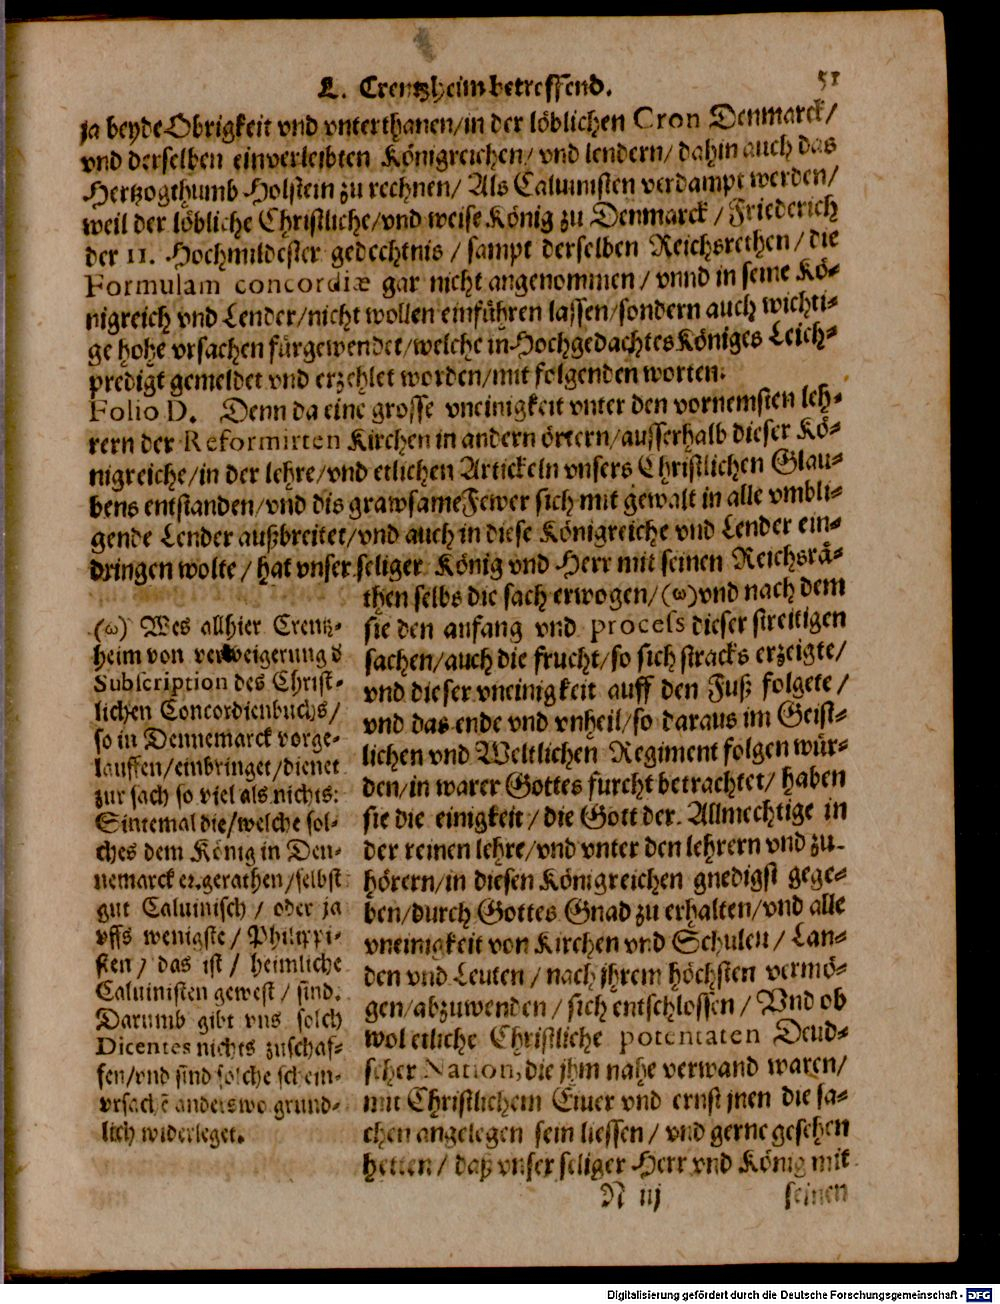 L. Crentzheim betreffend. 51
ja beyde Obrigkeit vnd vnterthanen/in der löblichen Cron Denmarck/
vnd derselben einverleibten Königreichen/vnd lendern/dahin auch das
Hertzogthumb Holstein zu rechnen/Als Caluinisten verdampt werden/
weil der löbliche Christliche/vnd weise König zu Denmarck/Friederich
der II. Hochmildester gedechtnis/sampt derselben Reichsrethen/die
Formulam concordiæ gar nicht angenommen/vnnd in seine Kö-
nigreich vnd Lender/nicht wollen einführen lassen/sondern auch wichti-
ge hohe vrsachen fürgewendet/welche in Hochgedachtes Königes Leich-
predigt gemeldet vnd erzehlet worden/mit folgenden worten.
Folio D. Denn da eine grosse vneinigkeit vnter den vornemsten leh-
rern der Reformirten Kirchen in andern örtern/ausserhalb dieser Kö-
nigreiche/in der lehre/vnd etlichen Artickeln vnsers Christlichen Glau-
bens entstanden/vnd dis grawsame Fewer sich mit gewalt in alle vmbli-
gende Lender außbreitet/vnd auch in diese Königreiche vnd Lender ein-
dringen wolte/hat vnser seliger König vnd Herr mit seinen Reichsrä-
then selbs die sach erwogen/(ω)vnd nach dem
sie den anfang vnd process dieser streitigen
sachen/auch die frucht/so sich stracks erzeigte/
vnd dieser vneinigkeit auff den Fuß folgete/
vnd das ende vnd vnheil/so daraus im Geist-
lichen vnd Weltlichen Regiment folgen wür-
den/in warer Gottes furcht betrachtet/haben
sie die einigkeit/die Gott der Allmechtige in
der reinen lehre/vnd vnter den lehrern vnd zu-
hörern/in diesen Königreichen gnedigst gege-
ben/durch Gottes Gnad zu erhalten/vnd alle
vneinigkeit von Kirchen vnd Schulen/Lan-
den vnd Leuten/nach jhrem höchsten vermö-
gen/abzuwenden/sich entschlossen/Vnd ob
wol etliche Christliche potentaten Deud-
scher Nation, die jhm nahe verwand waren/
mit Christlichem Eiuer vnd ernst jnen die sa-
chen angelegen sein liessen/vnd gerne gesehen
hetten/daß vnser seliger Herr vnd König mit
(ω) Wes allhier Crentz-
heim von verweigerung d
Subscription des Christ-
lichen Concordienbuchs/
so in Dennemarck vorge-
lauffen/einbringet/dienet
zur sach so viel als nichts:
Sintemal die/welche sol-
ches dem König in Den-
nemarck er. gerathen/selbst
gut Caluinisch/oder ja
vffs wenigste/Philippi-
sten/das ist/heimliche
Caluinisten gewest/sind.
Darumb gibt vns solch
Dicentes nichts zuschaf-
fen/vnd sind solche schein-
vrsachē anderswo gründ-
lich widerleget.
N iij seinen
Digitalisierung gefördert durch die Deutsche Forschungsgemeinschaft - DFG